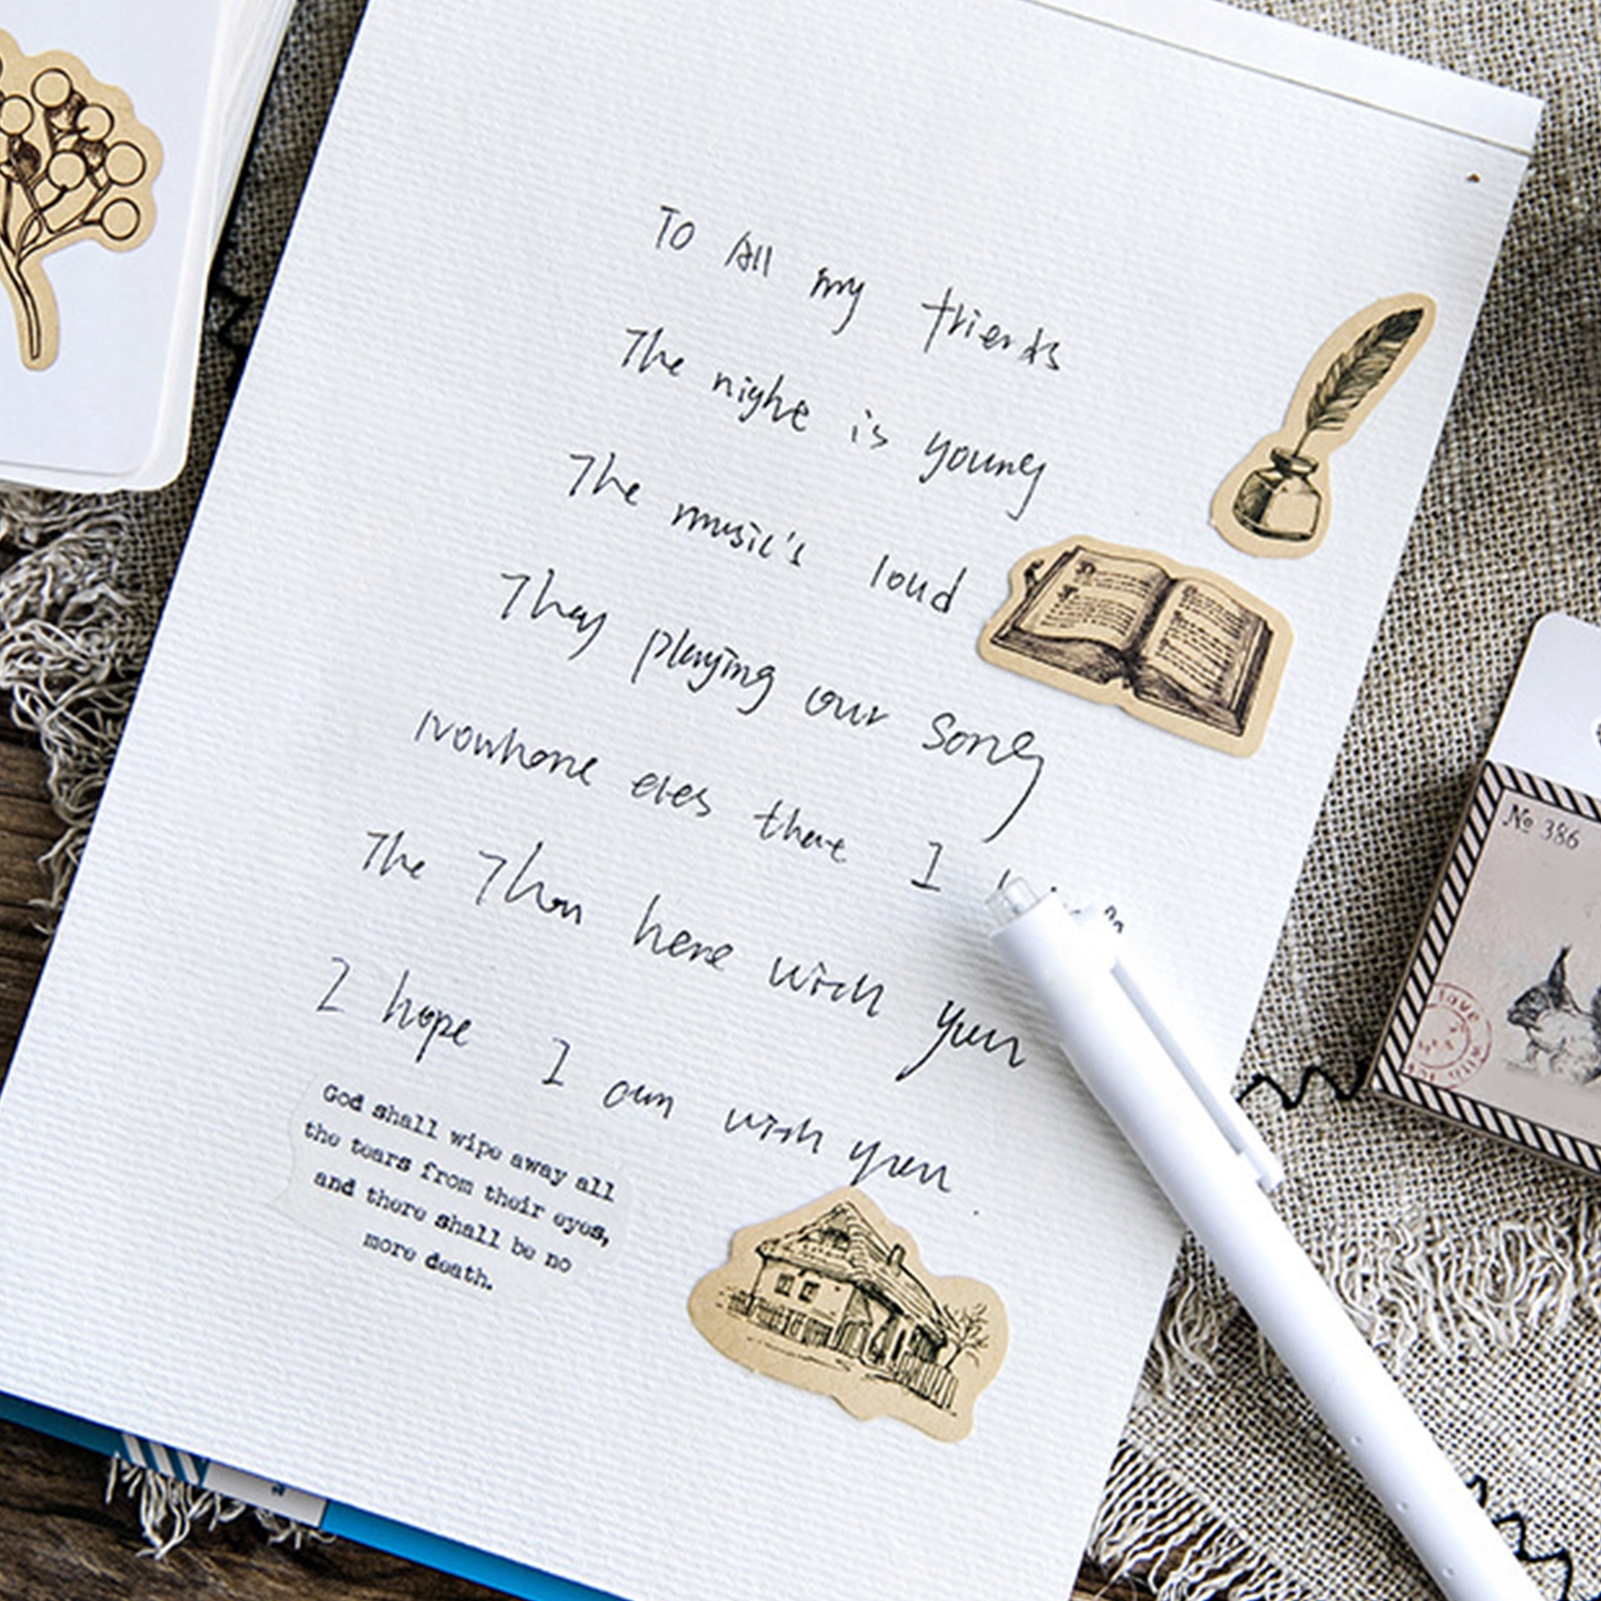 To All my friends
The night is young
The music's loud
They playing our song
Nowhone eles there I
The Than here with you
I hope I am with you.
God shall wipe away all
the tears from their eyes,
and there shall be no
more death.
№ 386